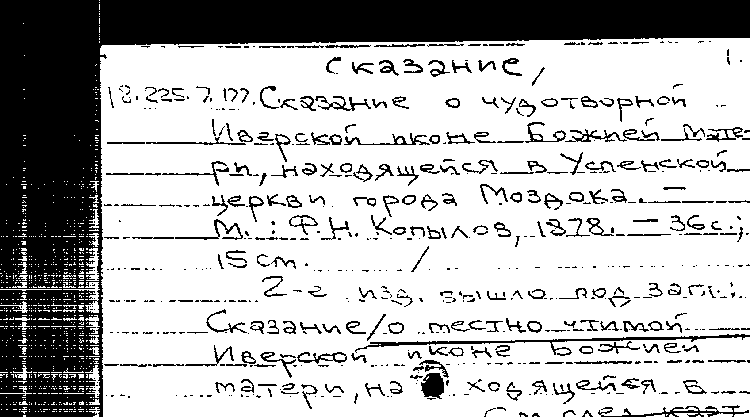 сказание, 1.
18.225.7.177. Сказание о чудотворной
Иверской иконе Божией Мате-
ри, находящейся в Успенской
церкви города Моздока. —
М. : Ф.Н. Копылов, 1878. — 36 с.;
15 см. /
2-е изд. вышло под загл.:
Сказание/о местно чтимой
Иверской иконе Божией
матери, на ходящейся в
См. след. карт